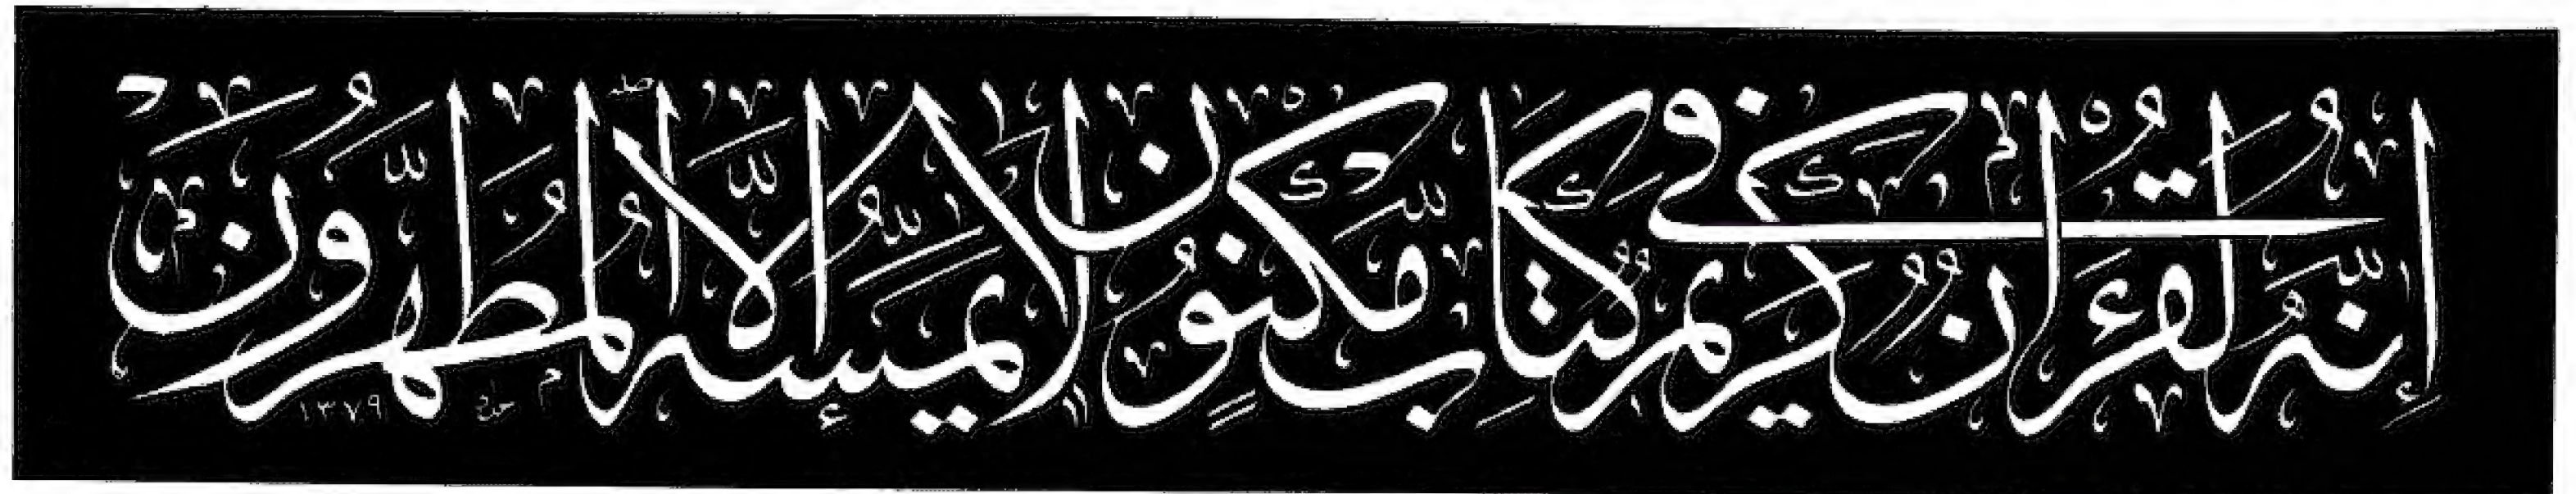 إِنَّهُ لَقُرْءَانٌ كَرِيمٌ فِي كِتَابٍ مَّكْنُونٍ لَا يَمَسُّهُ إِلَّا الْمُطَهَّرُونَ
١٣٧٩